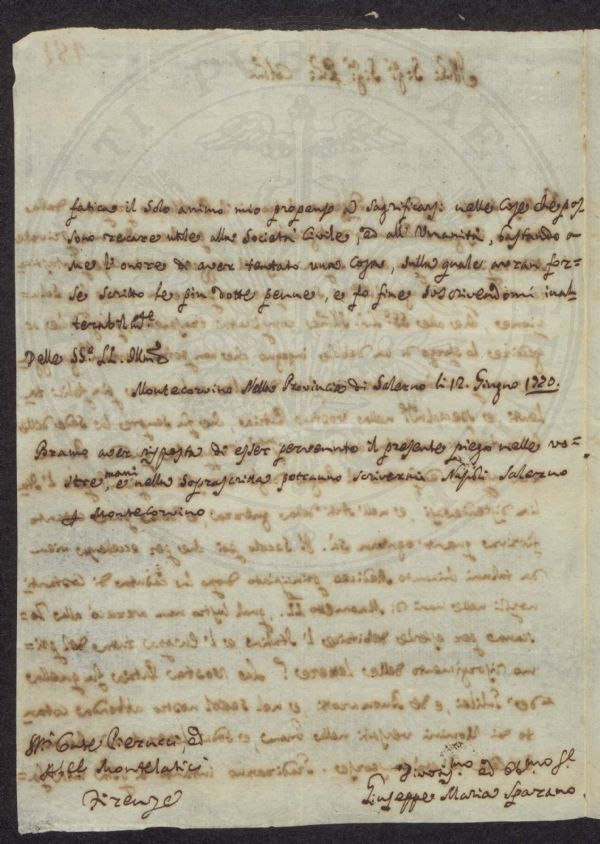 fatica il solo animo mio propenso a sagrificarsi nelle Cose che pos
sono recare utile alla Società Civile, ed all'Umanità, bastando a
me l'onore di aver tentato una Cosa, sulla quale avran for=
se scritto le più dotte penne, e fo fine soscrivendomi inal=
terabilmte
Delle SS.e LL. Illme
Montecorvino Nella Provincia di Salerno li 12. Giugno 1770.
Bramo aver risposta di esser pervenuto il presente piego nelle vo=
stre mani, e nella soprascritta potranno scrivermi Napoli Salerno
Montecorvino
Conte Pierucci, ed
Montelatici
Firenze
Divotmo ed Obmo
Giuseppe Maria Sparano